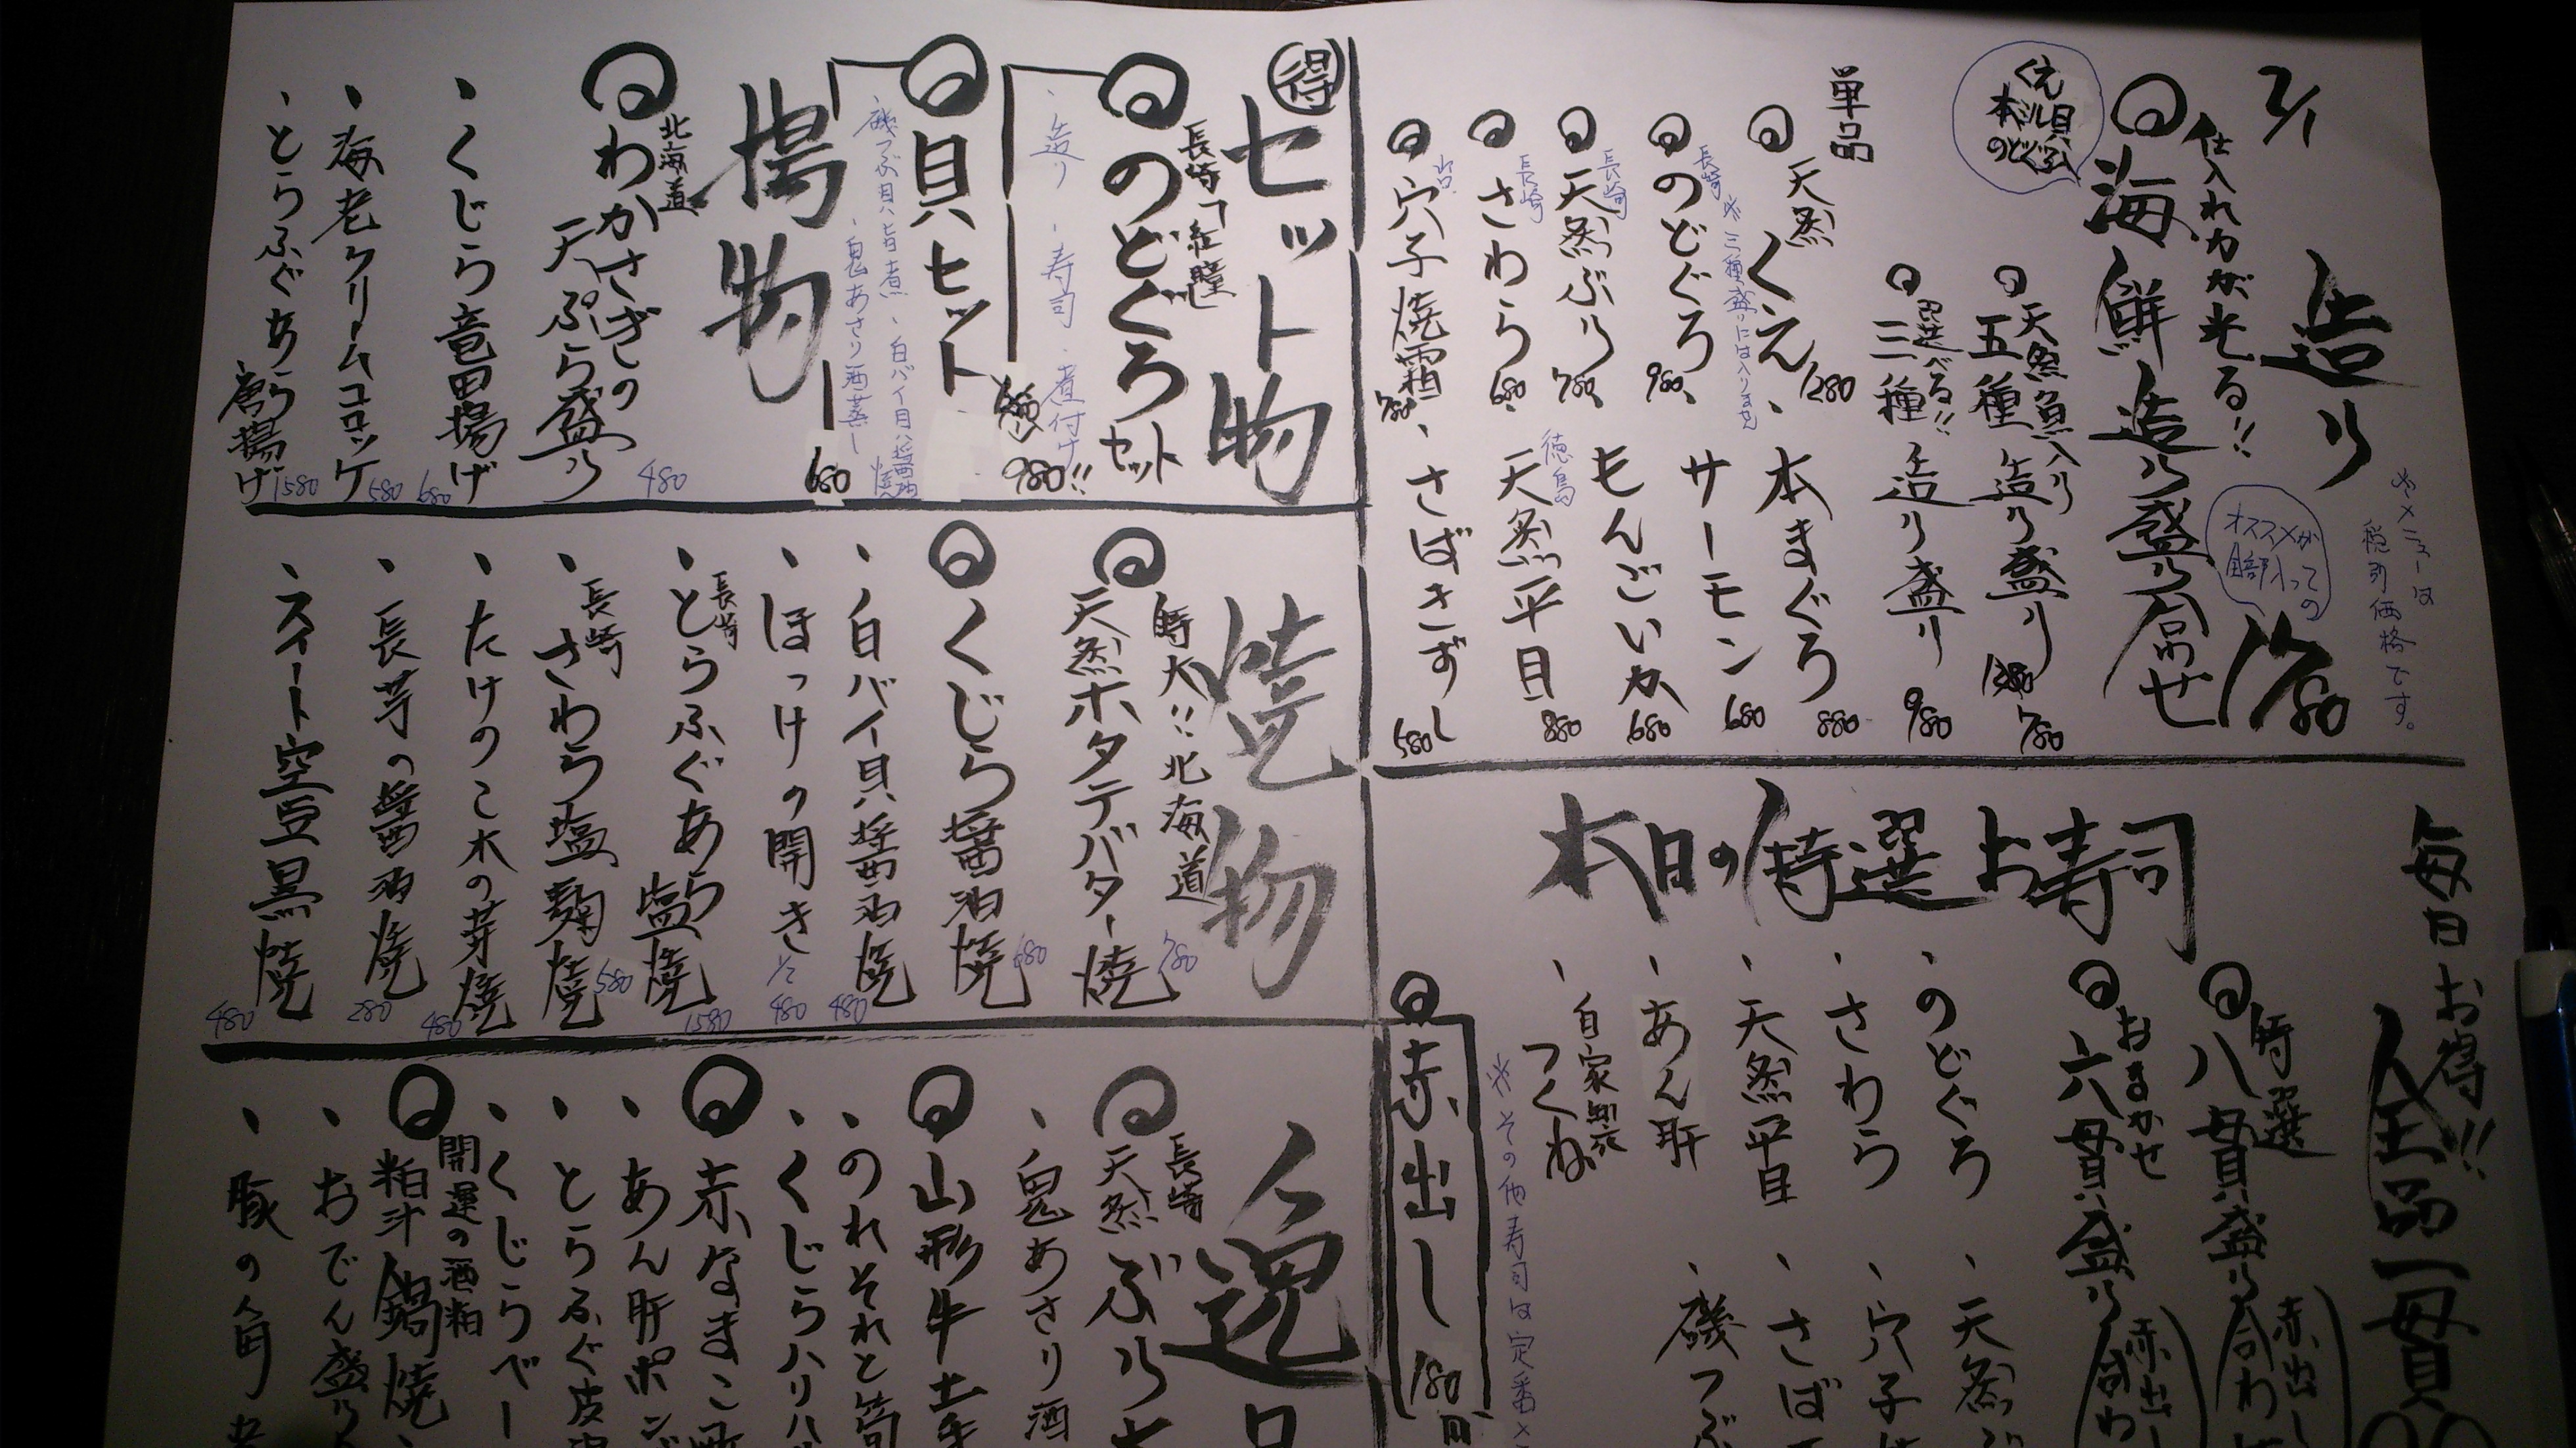 2/1
造り
※メニューは
税別価格です。
仕入れ力が光る!!
海鮮造り盛り合わせ
くえ
本ミル貝
のどぐろ
オススメが
全部入っての
1780
天然魚入り
五種造り盛り
1280
780
選べる!!
三種造り盛り
980
単品
天然
くえ
1280
本まぐろ
880
長崎
のどぐろ
980
※三種盛りには入りません
サーモン
680
長崎
天然ぶり
780
もんごいか
680
長崎
さわら
680
徳島
天然平目
880
穴子焼霜
780
さばきずし
580
毎日お得!!
全品一貫
本日の特選お寿司
特選
八貫盛り
赤出し
おまかせ
六貫盛り
赤出し
のどぐろ
天然ぶ
さわら
穴子
天然平目
さば
あん肝
磯つぶ
自家製
つくね
※その他寿司は定番メ
赤出し 180円
得
セット物
長崎「紅瞳」
のどぐろセット
980!!
造り・寿司・煮付け
貝セット
680
磯つぶ貝旨煮、白バイ貝醤油焼
白鬼あさり酒蒸し
揚物
北海道
わかさぎの
天ぷら盛り
480
くじら竜田揚げ
680
海老クリームコロッケ
580
とらふぐあら
唐揚げ
1580
焼物
特大!!北海道
天然ホタテバター焼
780
くじら醤油焼
680
白バイ貝醤油焼
480
ほっけの開き
1/2
480
長崎
とらふぐあら
塩焼
1580
長崎
さわら塩麹焼
580
たけのこ木の芽焼
480
長芋の醤油焼
280
スイート空豆黒焼
480
一逸口
長崎
天然ぶり大
白鬼あさり酒
山形牛土手
のれそれと筍
くじらハリハ
赤なまこ
あん肝ポン
とらふぐ皮
くじらベー
開運の酒粕
粕汁鍋焼
おでん盛り
豚の角煮